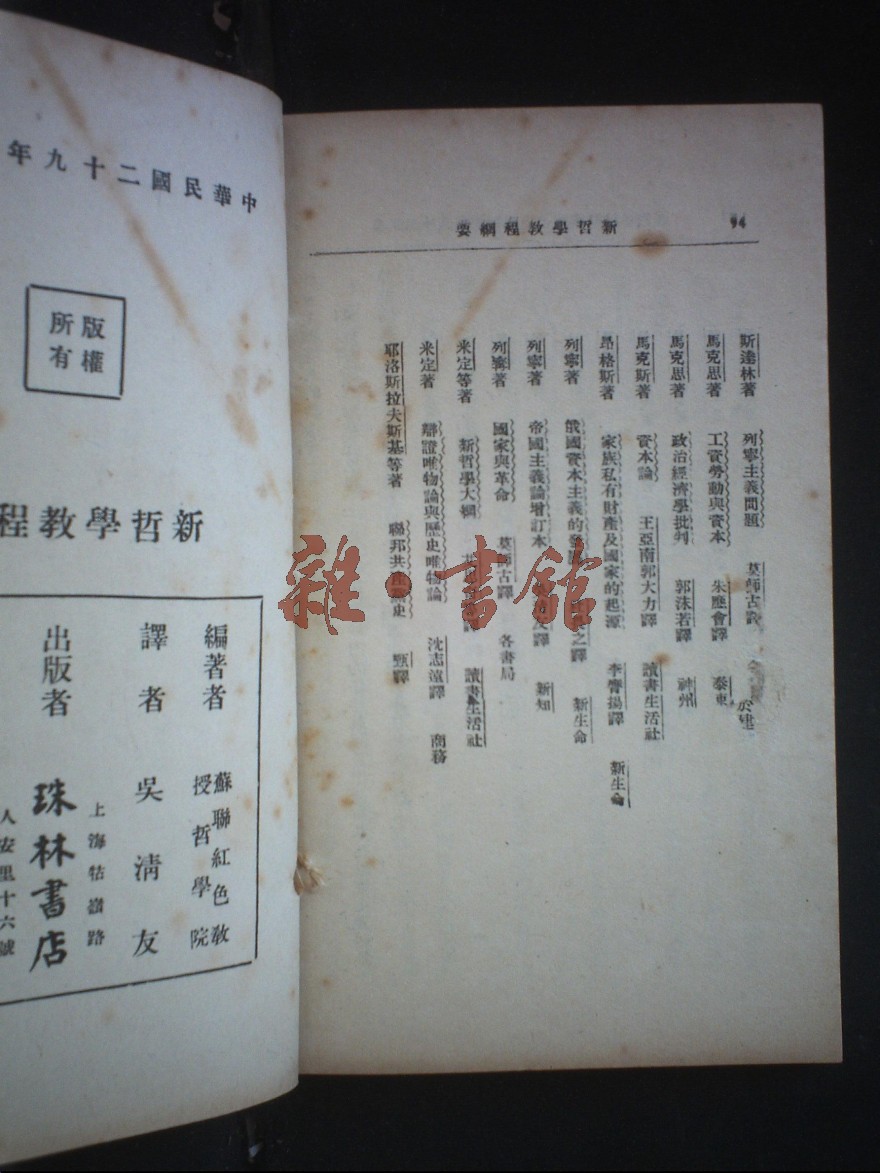 94
新哲學教程綱要
斯達林著 列寧主義問題 莫師古譯
馬克思著 工資勞動與資本 朱應會譯 泰東
馬克思著 政治經濟學批判 郭沫若譯 神州
馬克斯著 資本論 王亞南郭大力譯 讀書生活社
昂格斯著 家族私有財產及國家的起源 李膺揚譯 新生命
列寧著 俄國資本主義的發 之譯 新生命
列寧著 帝國主義論增訂本 譯 新知
列寧著 國家與革命 莫師古譯 各書局
米定等著 新哲學大綱 譯 讀書生活社
米定著 辯證唯物論與歷史唯物論 沈志遠譯 商務
耶洛斯拉夫斯基等著 聯邦共 史 譯
中華民國二十九年
版權所有
新哲學教程
編著者 蘇聯紅色教授哲學院
譯者 吳清友
出版者 珠林書店
上海牯嶺路
人安里十六號
雜·書館